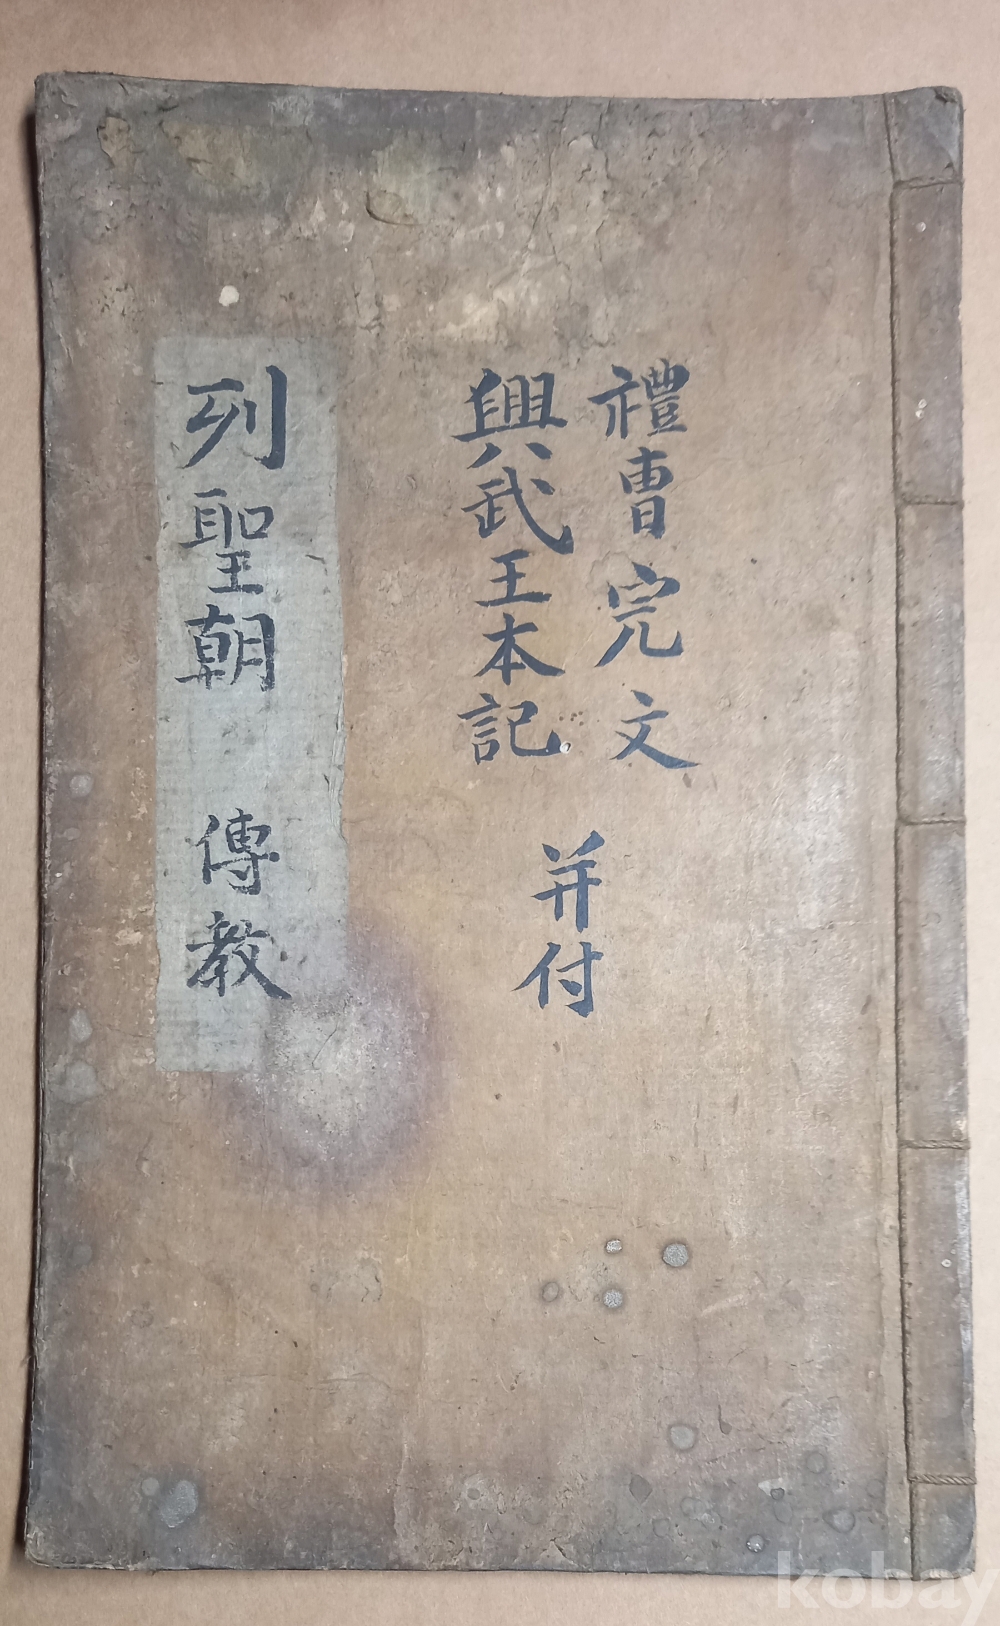 禮曹完文
興武王本記
并付
列聖朝 傳教
kobay